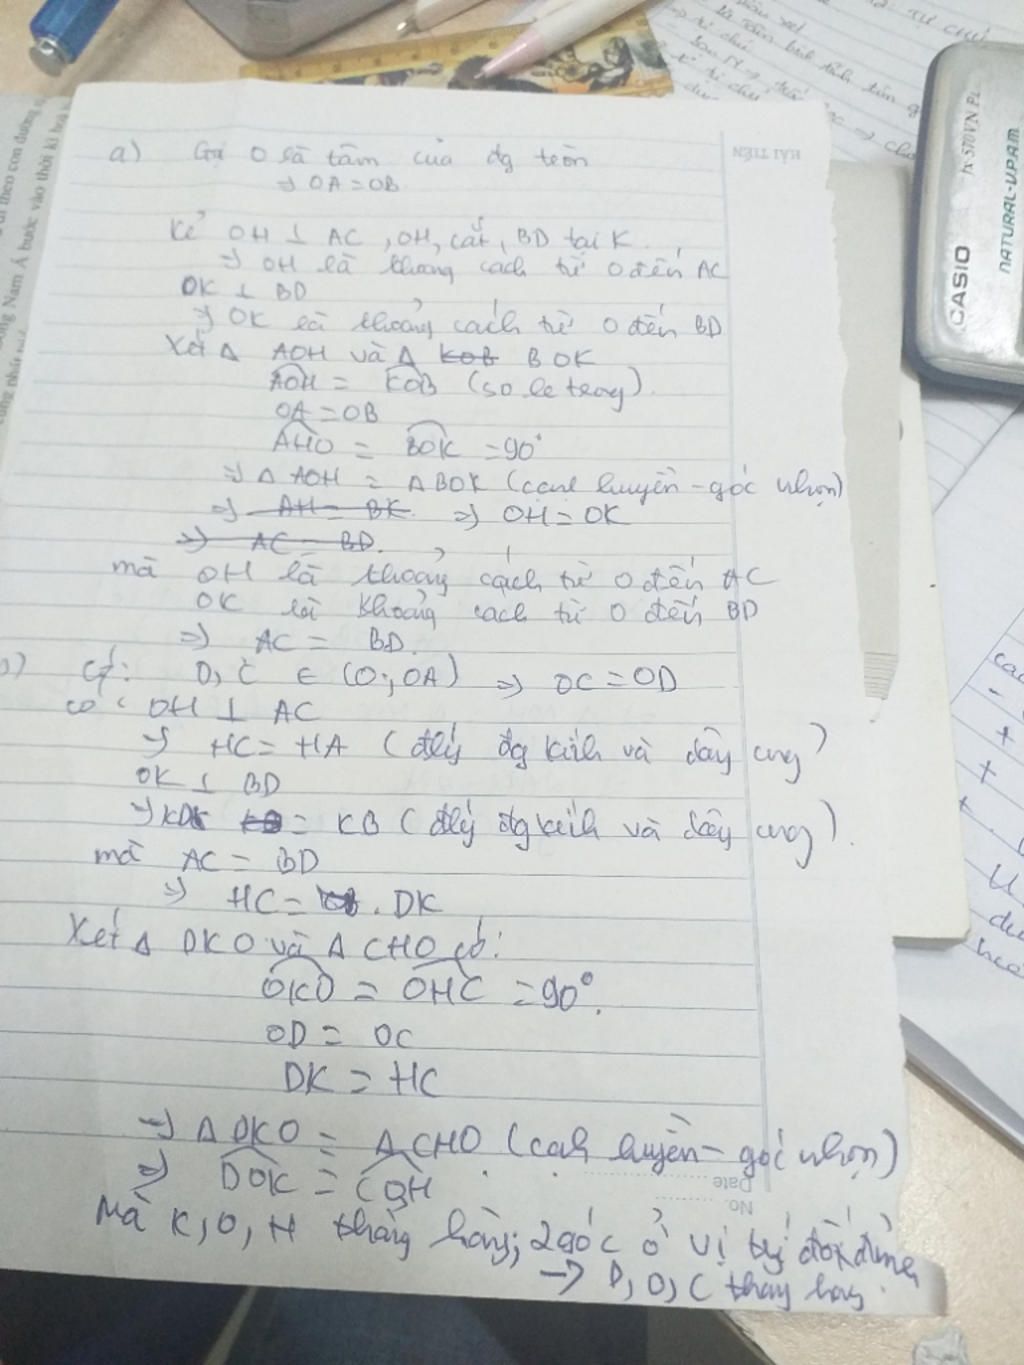 a) Gọi O là tâm của đg tròn
=> OA = OB
Kẻ OH ⊥ AC, OH cắt BD tại K.
=> OH là khoảng cách từ O đến AC
OK ⊥ BD
=> OK là khoảng cách từ O đến BD
Xét Δ AOH và Δ KOB BOK
AOH = KOB (so le trong).
OA = OB
AHO = BOK = 90°
=> Δ AOH = Δ BOK (cạnh huyền - góc nhọn)
=> AH = BK. => OH = OK
=> AC = BD.
mà OH là khoảng cách từ O đến AC
OK là khoảng cách từ O đến BD
=> AC = BD.
có: D, C ∈ (O; OA) => OC = OD
có: OH ⊥ AC
=> HC = HA (đlý đg kính và dây cung)
OK ⊥ BD
=> KD = KB (đlý đg kính và dây cung).
mà AC = BD
=> HC = DK
Xét Δ DKO và Δ CHO có:
OKD = OHC = 90°.
OD = OC
DK = HC
=> Δ DKO = Δ CHO (cạnh huyền - góc nhọn)
=> DOK = COH
Mà K, O, H thẳng hàng; 2 góc ở vị trí đối đỉnh
-> D, O, C thẳng hàng.
HẢI TIẾN
Date
No.
CASIO
fx-570VN PL
NATURAL-V.P.A.M.